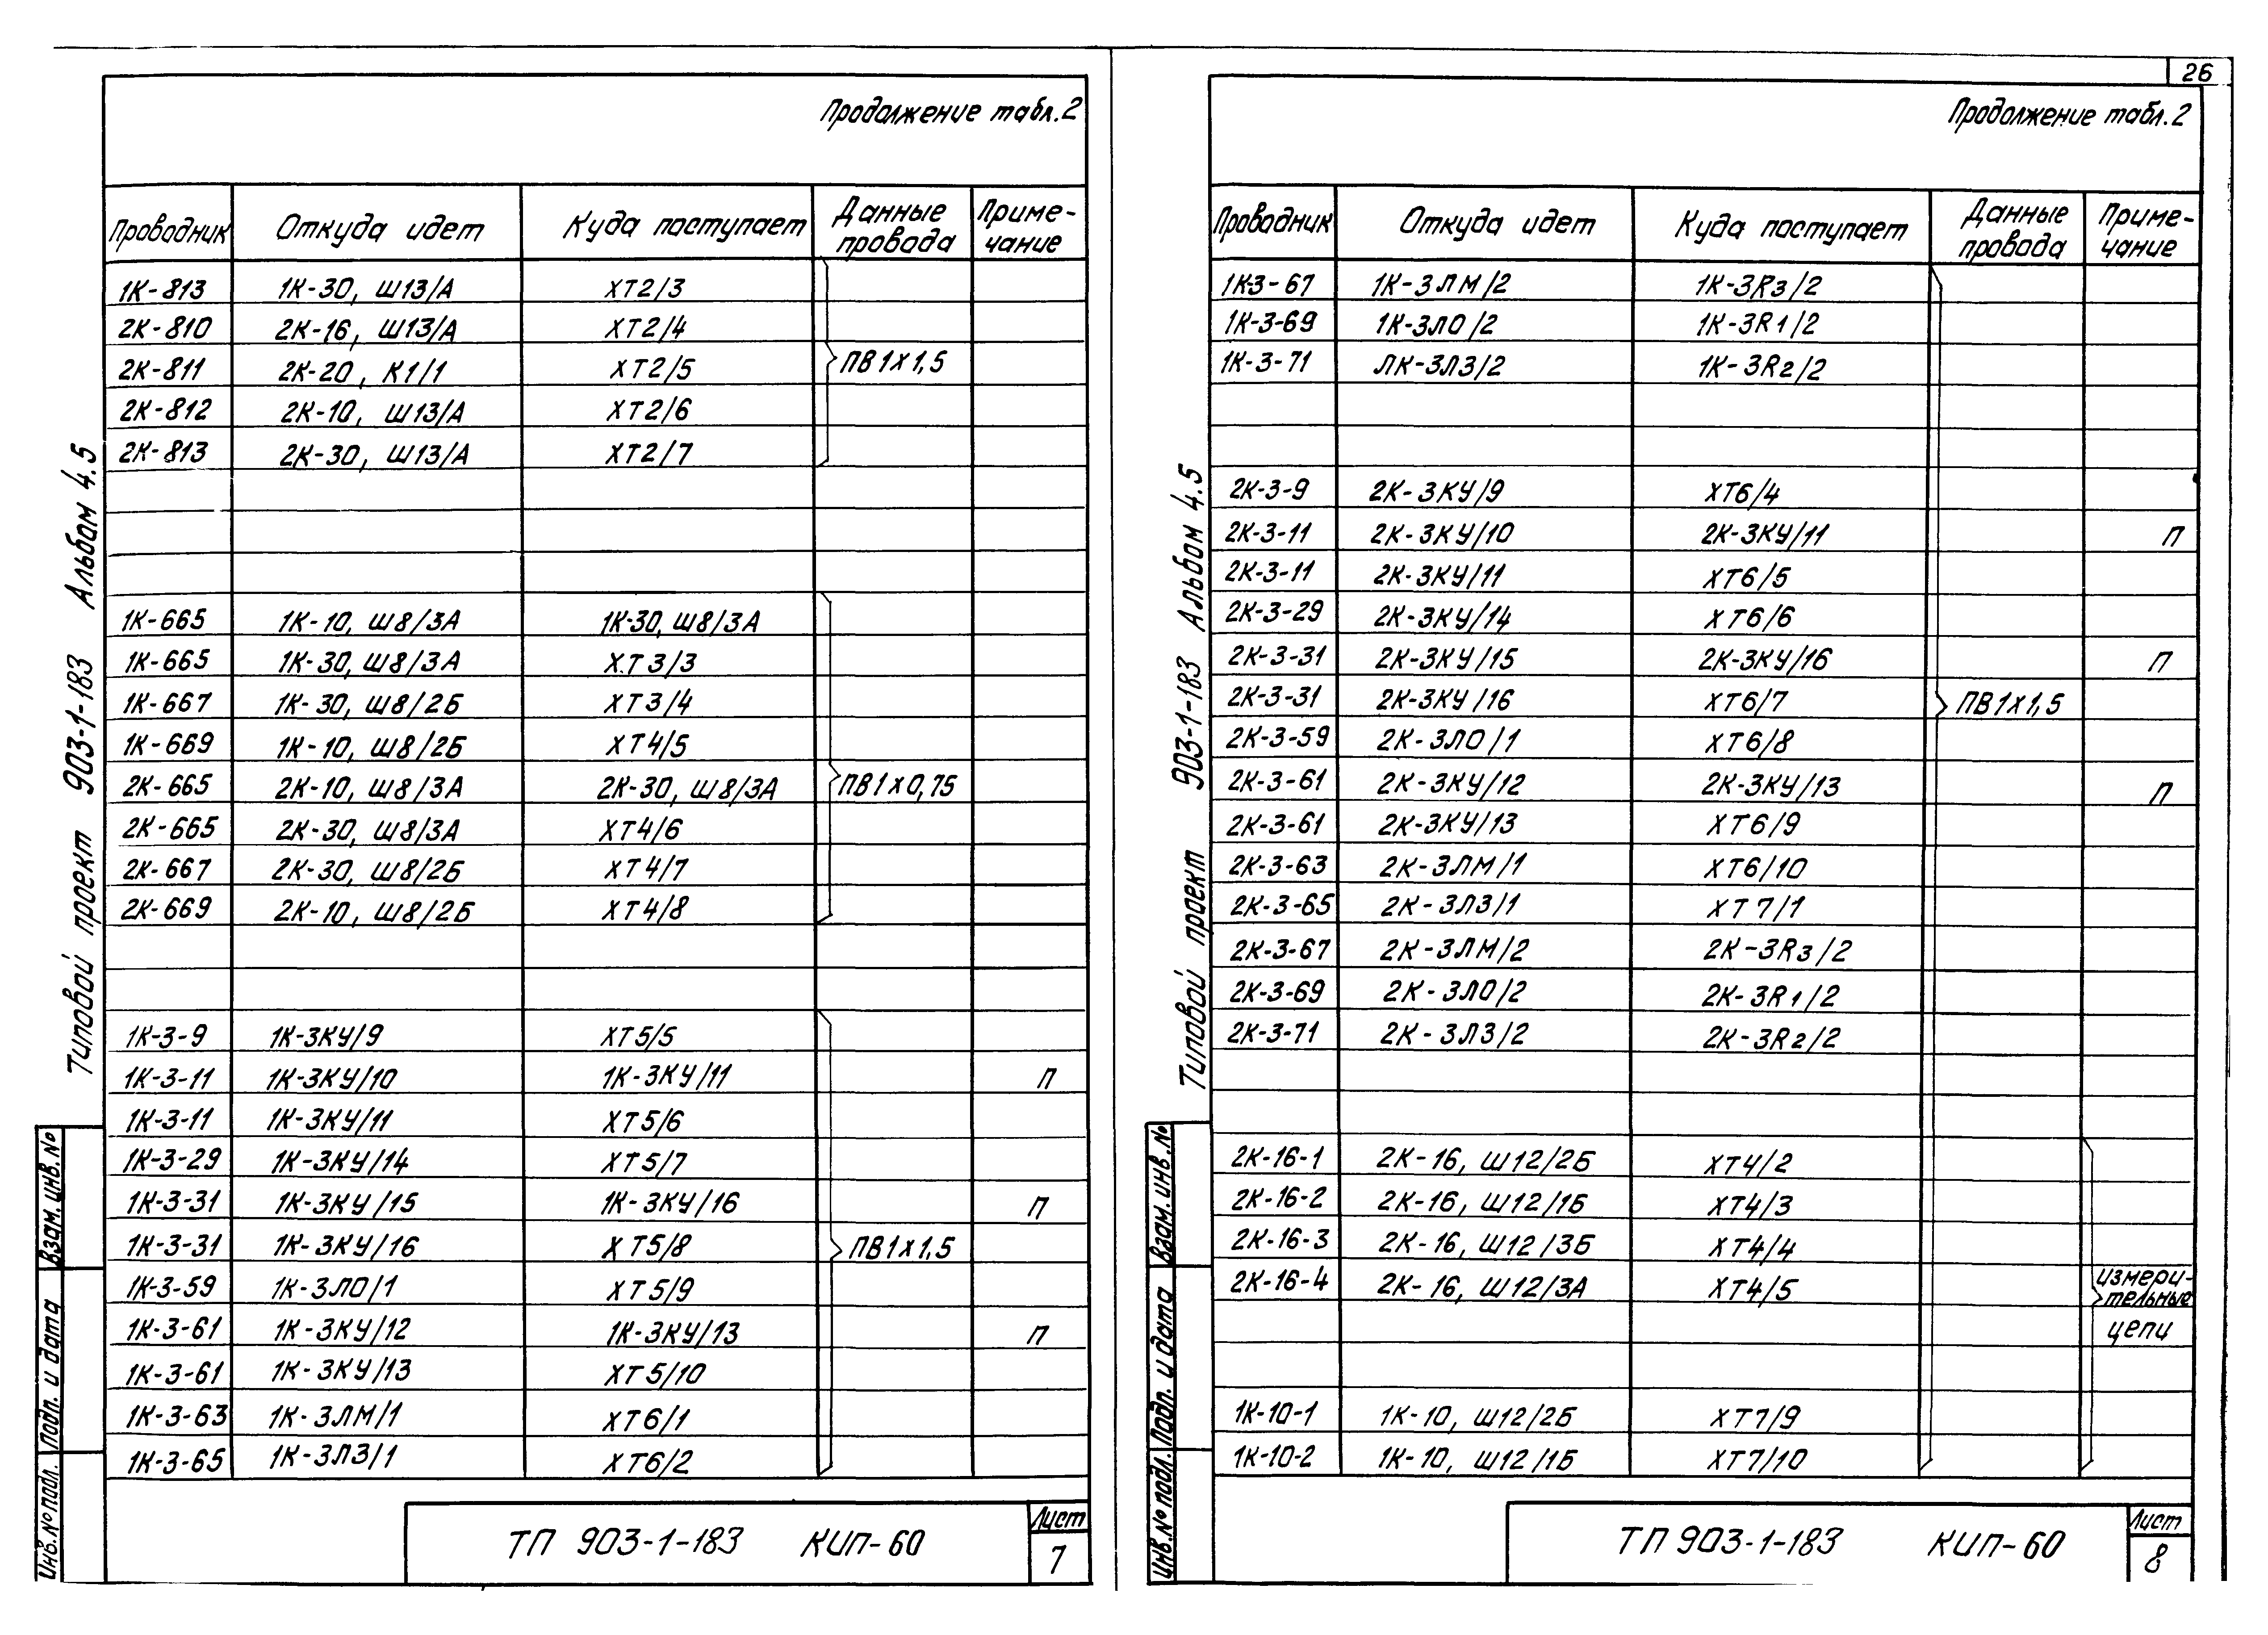 26
Продолжение табл.2
Проводник Откуда идет Куда поступает Данные провода Приме-чание
1К-813 1К-30, Ш13/А ХТ2/3
2К-810 2К-16, Ш13/А ХТ2/4
2К-811 2К-20, К1/1 ХТ2/5 ПВ1х1,5
2К-812 2К-10, Ш13/А ХТ2/6
2К-813 2К-30, Ш13/А ХТ2/7
1К-665 1К-10, Ш8/3А 1К-30, Ш8/3А
1К-665 1К-30, Ш8/3А ХТ3/3
1К-667 1К-30, Ш8/2Б ХТ3/4
1К-669 1К-10, Ш8/2Б ХТ4/5
2К-665 2К-10, Ш8/3А 2К-30, Ш8/3А ПВ1х0,75
2К-665 2К-30, Ш8/3А ХТ4/6
2К-667 2К-30, Ш8/2Б ХТ4/7
2К-669 2К-10, Ш8/2Б ХТ4/8
1К-3-9 1К-3КУ/9 ХТ5/5
1К-3-11 1К-3КУ/10 1К-3КУ/11 П
1К-3-11 1К-3КУ/11 ХТ5/6
1К-3-29 1К-3КУ/14 ХТ5/7
1К-3-31 1К-3КУ/15 1К-3КУ/16 П
1К-3-31 1К-3КУ/16 ХТ5/8 ПВ1х1,5
1К-3-59 1К-3ЛО/1 ХТ5/9
1К-3-61 1К-3КУ/12 1К-3КУ/13 П
1К-3-61 1К-3КУ/13 ХТ5/10
1К-3-63 1К-3ЛМ/1 ХТ6/1
1К-3-65 1К-3ЛЗ/1 ХТ6/2
ТП 903-1-183 КИП-60
Лист
7
Типовой проект 903-1-183 Альбом 4.5
Взам. инв. №
Подп. и дата
Инв. № подл.
Продолжение табл.2
Проводник Откуда идет Куда поступает Данные провода Приме-чание
1К3-67 1К-3ЛМ/2 1К-3R3/2
1К-3-69 1К-3ЛО/2 1К-3R1/2
1К-3-71 ЛК-3ЛЗ/2 1К-3R2/2
2К-3-9 2К-3КУ/9 ХТ6/4
2К-3-11 2К-3КУ/10 2К-3КУ/11 П
2К-3-11 2К-3КУ/11 ХТ6/5
2К-3-29 2К-3КУ/14 ХТ6/6
2К-3-31 2К-3КУ/15 2К-3КУ/16 П
2К-3-31 2К-3КУ/16 ХТ6/7 ПВ1х1,5
2К-3-59 2К-3ЛО/1 ХТ6/8
2К-3-61 2К-3КУ/12 2К-3КУ/13 П
2К-3-61 2К-3КУ/13 ХТ6/9
2К-3-63 2К-3ЛМ/1 ХТ6/10
2К-3-65 2К-3ЛЗ/1 ХТ7/1
2К-3-67 2К-3ЛМ/2 2К-3R3/2
2К-3-69 2К-3ЛО/2 2К-3R1/2
2К-3-71 2К-3ЛЗ/2 2К-3R2/2
2К-16-1 2К-16, Ш12/2Б ХТ4/2
2К-16-2 2К-16, Ш12/1Б ХТ4/3
2К-16-3 2К-16, Ш12/3Б ХТ4/4
2К-16-4 2К-16, Ш12/3А ХТ4/5 измери-
тельные
цепи
1К-10-1 1К-10, Ш12/2Б ХТ7/9
1К-10-2 1К-10, Ш12/1Б ХТ7/10
ТП 903-1-183 КИП-60
Лист
8
Типовой проект 903-1-183 Альбом 4.5
Взам. инв. №
Подп. и дата
Инв. № подл.